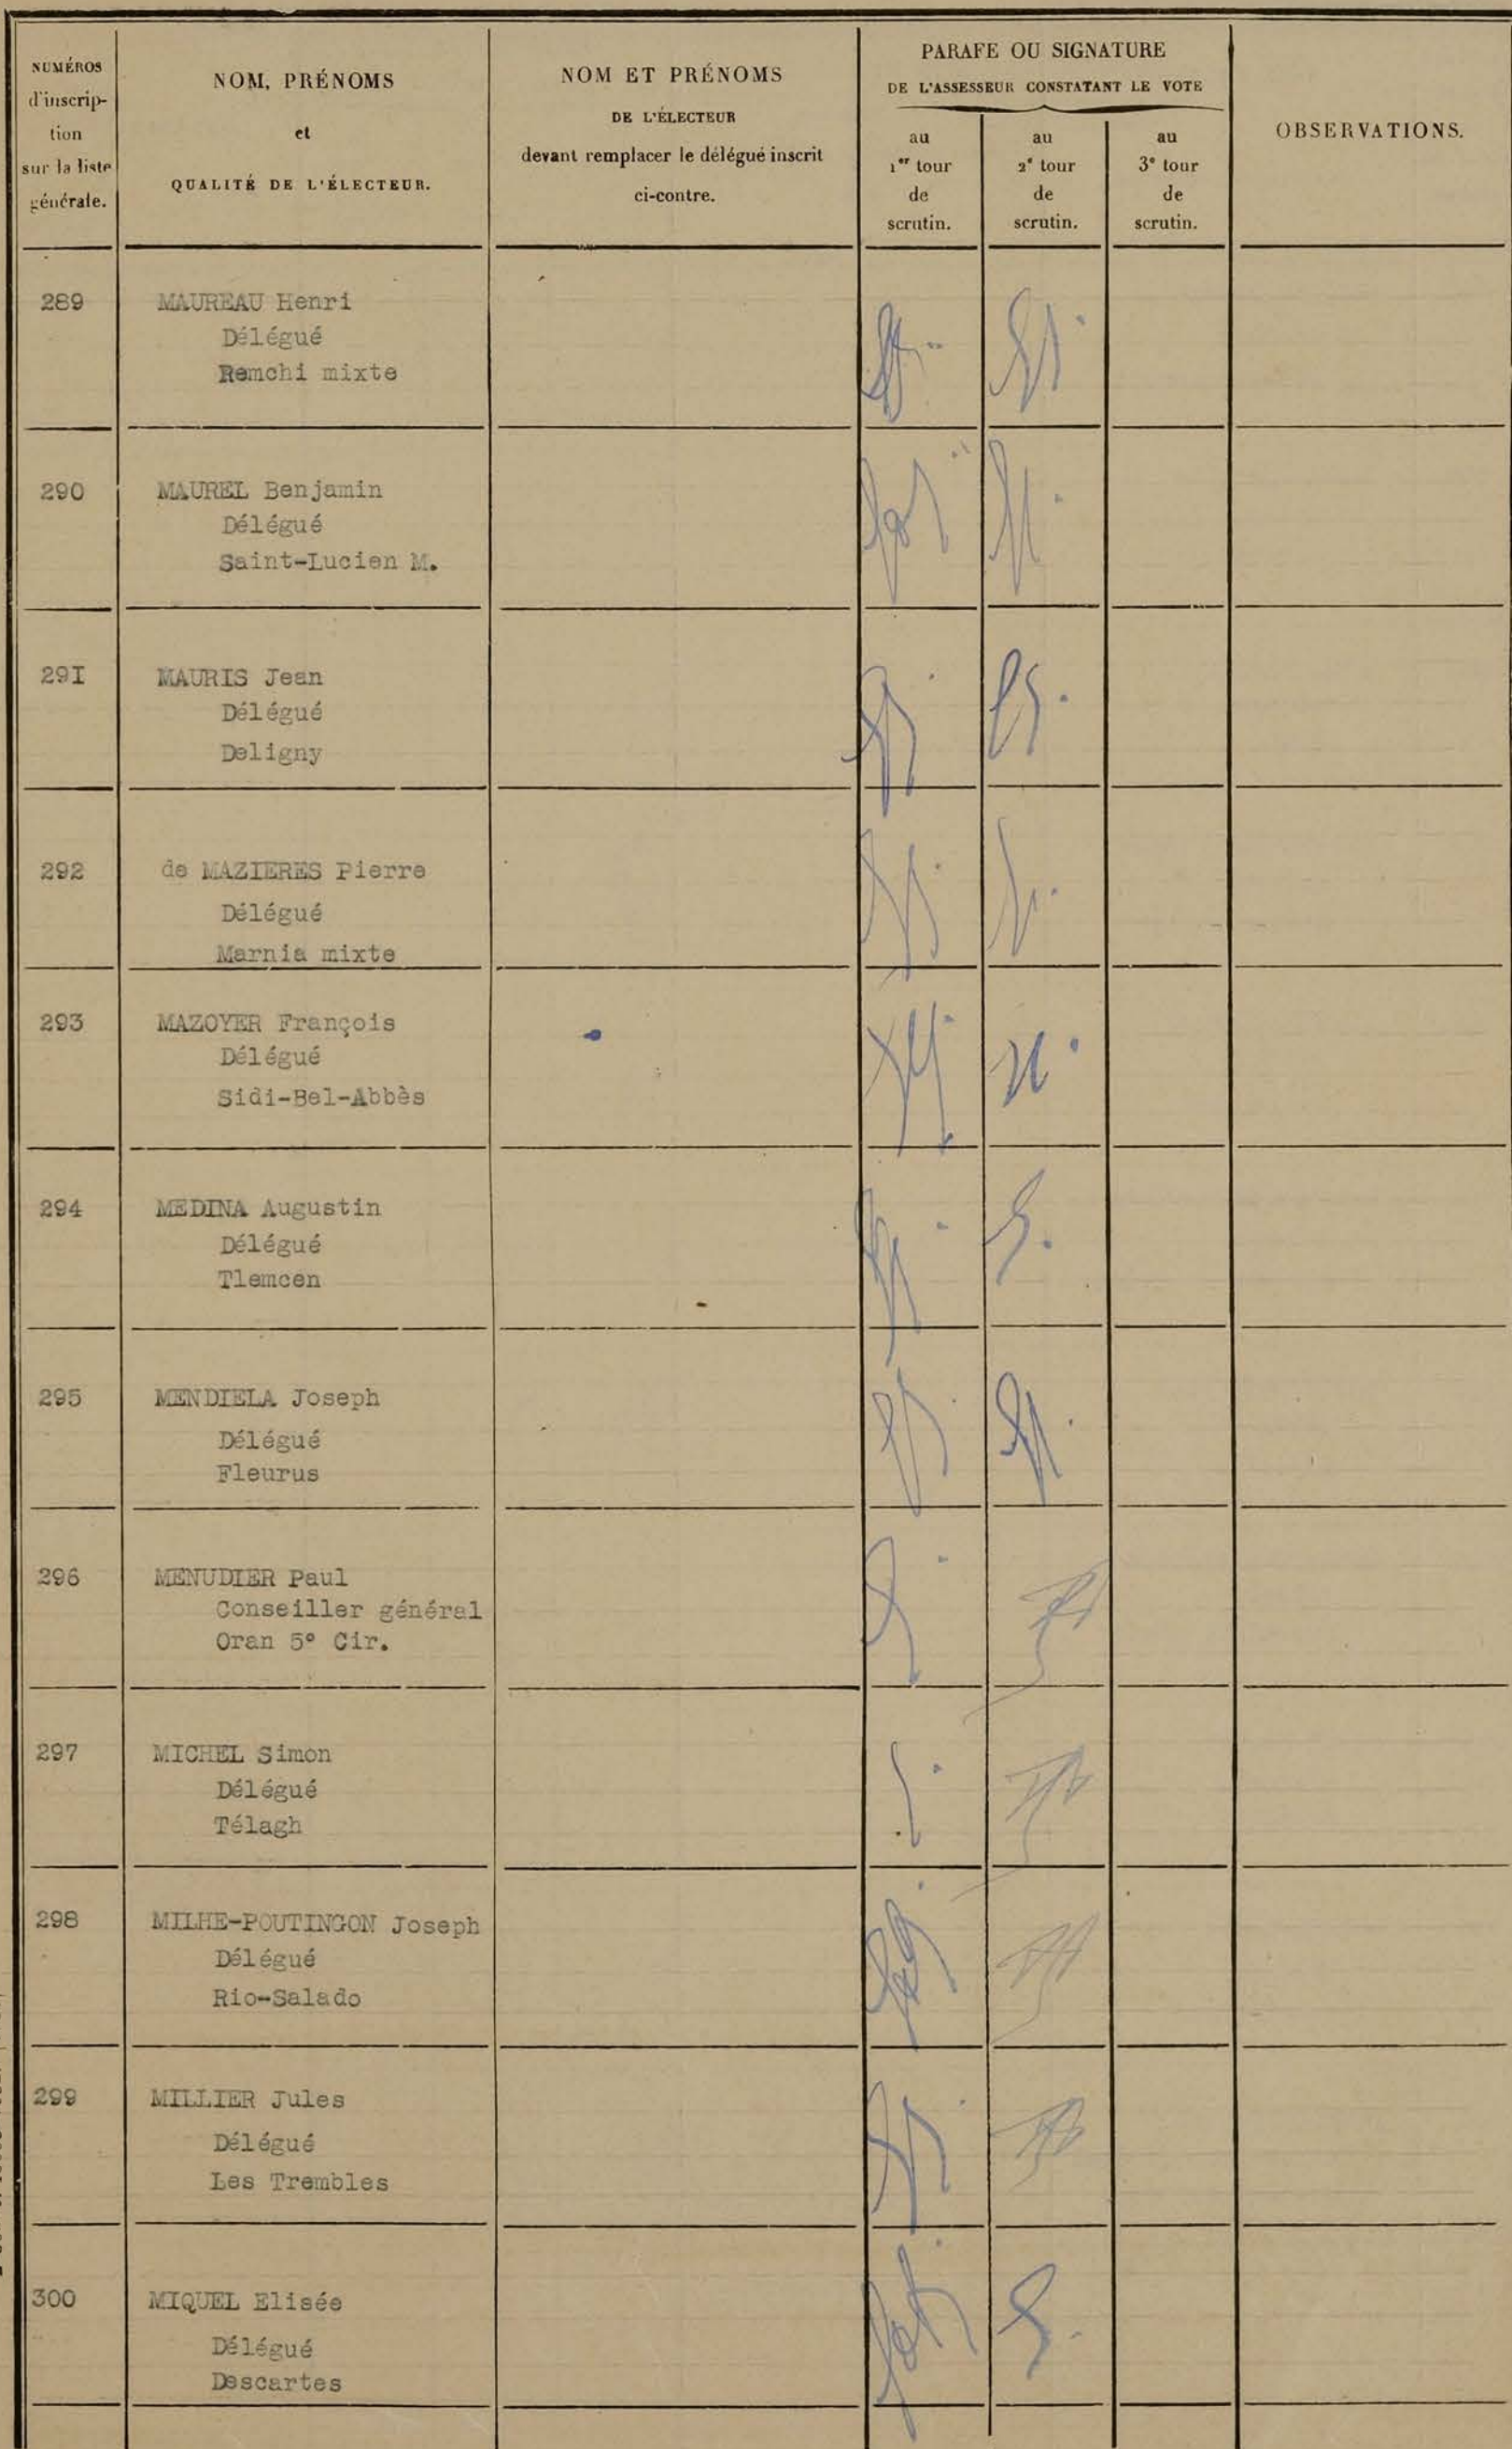 NUMÉROS
d'inscrip-
tion
sur la liste
générale.
NOM, PRÉNOMS
et
QUALITÉ DE L'ÉLECTEUR.
NOM ET PRÉNOMS
DE L'ÉLECTEUR
devant remplacer le délégué inscrit
ci-contre.
PARAFE OU SIGNATURE
DE L'ASSESSEUR CONSTATANT LE VOTE
au
1er tour
de
scrutin.
au
2e tour
de
scrutin.
au
3e tour
de
scrutin.
OBSERVATIONS.
289 MAUREAU Henri
Délégué
Remchi mixte
290 MAUREL Benjamin
Délégué
Saint-Lucien M.
29I MAURIS Jean
Délégué
Deligny
292 de MAZIERES Pierre
Délégué
Marnia mixte
293 MAZOYER François
Délégué
Sidi-Bel-Abbès
294 MEDINA Augustin
Délégué
Tlemcen
295 MENDIELA Joseph
Délégué
Fleurus
296 MENUDIER Paul
Conseiller général
Oran 5° Cir.
297 MICHEL Simon
Délégué
Télagh
298 MILHE-POUTINGON Joseph
Délégué
Rio-Salado
299 MILLIER Jules
Délégué
Les Trembles
300 MIQUEL Elisée
Délégué
Descartes